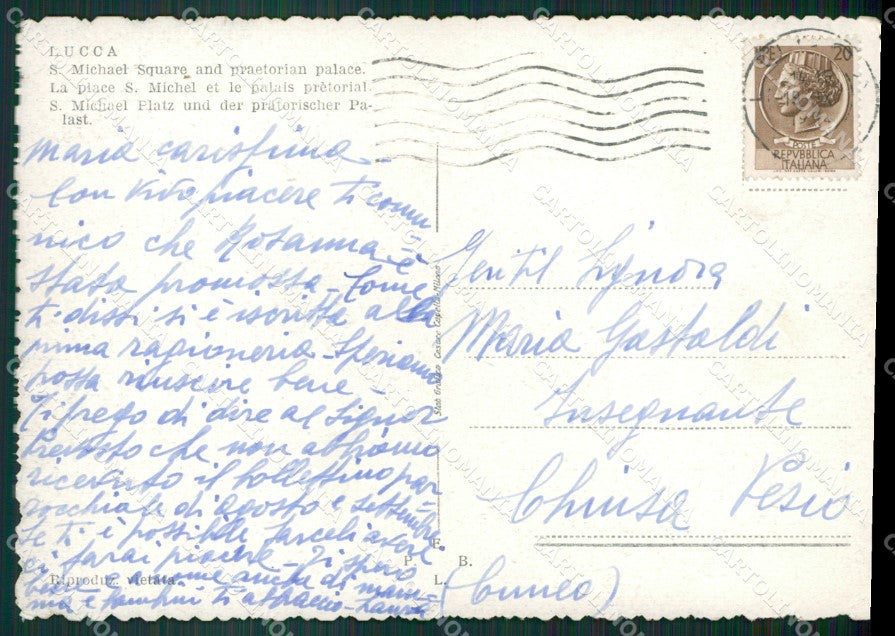 LUCCA
S. Michael Square and praetorian palace.
La place S. Michel et le palais prètorial.
S. Michael Platz und der prätorischer Pa-
last.
Maria carissima -
Con vivo piacere ti comu
nico che Rosanna è
stata promossa - Come
ti dissi si è iscritta alla
prima ragioneria - Speriamo
possa riuscire bene -
Ti prego di dire al Signor
Prevosto che non abbiamo
ricevuto il bollettino par
rocchiale di agosto e settembre
se ti è possibile farceli avere
ci farai piacere - Ti spero
bene - come anche di mam-
ma e bambini ti abbraccio - Laura
Riproduz. vietata.
Stab. Grafico Cesare Capello - Milano
F.
P. B.
L.
20
POSTE
REPVBBLICA
ITALIANA
Gentil Signora
Maria Gastaldi
Insegnante
Chiusa Pesio
(Cuneo)
CARTOLINOMANIA